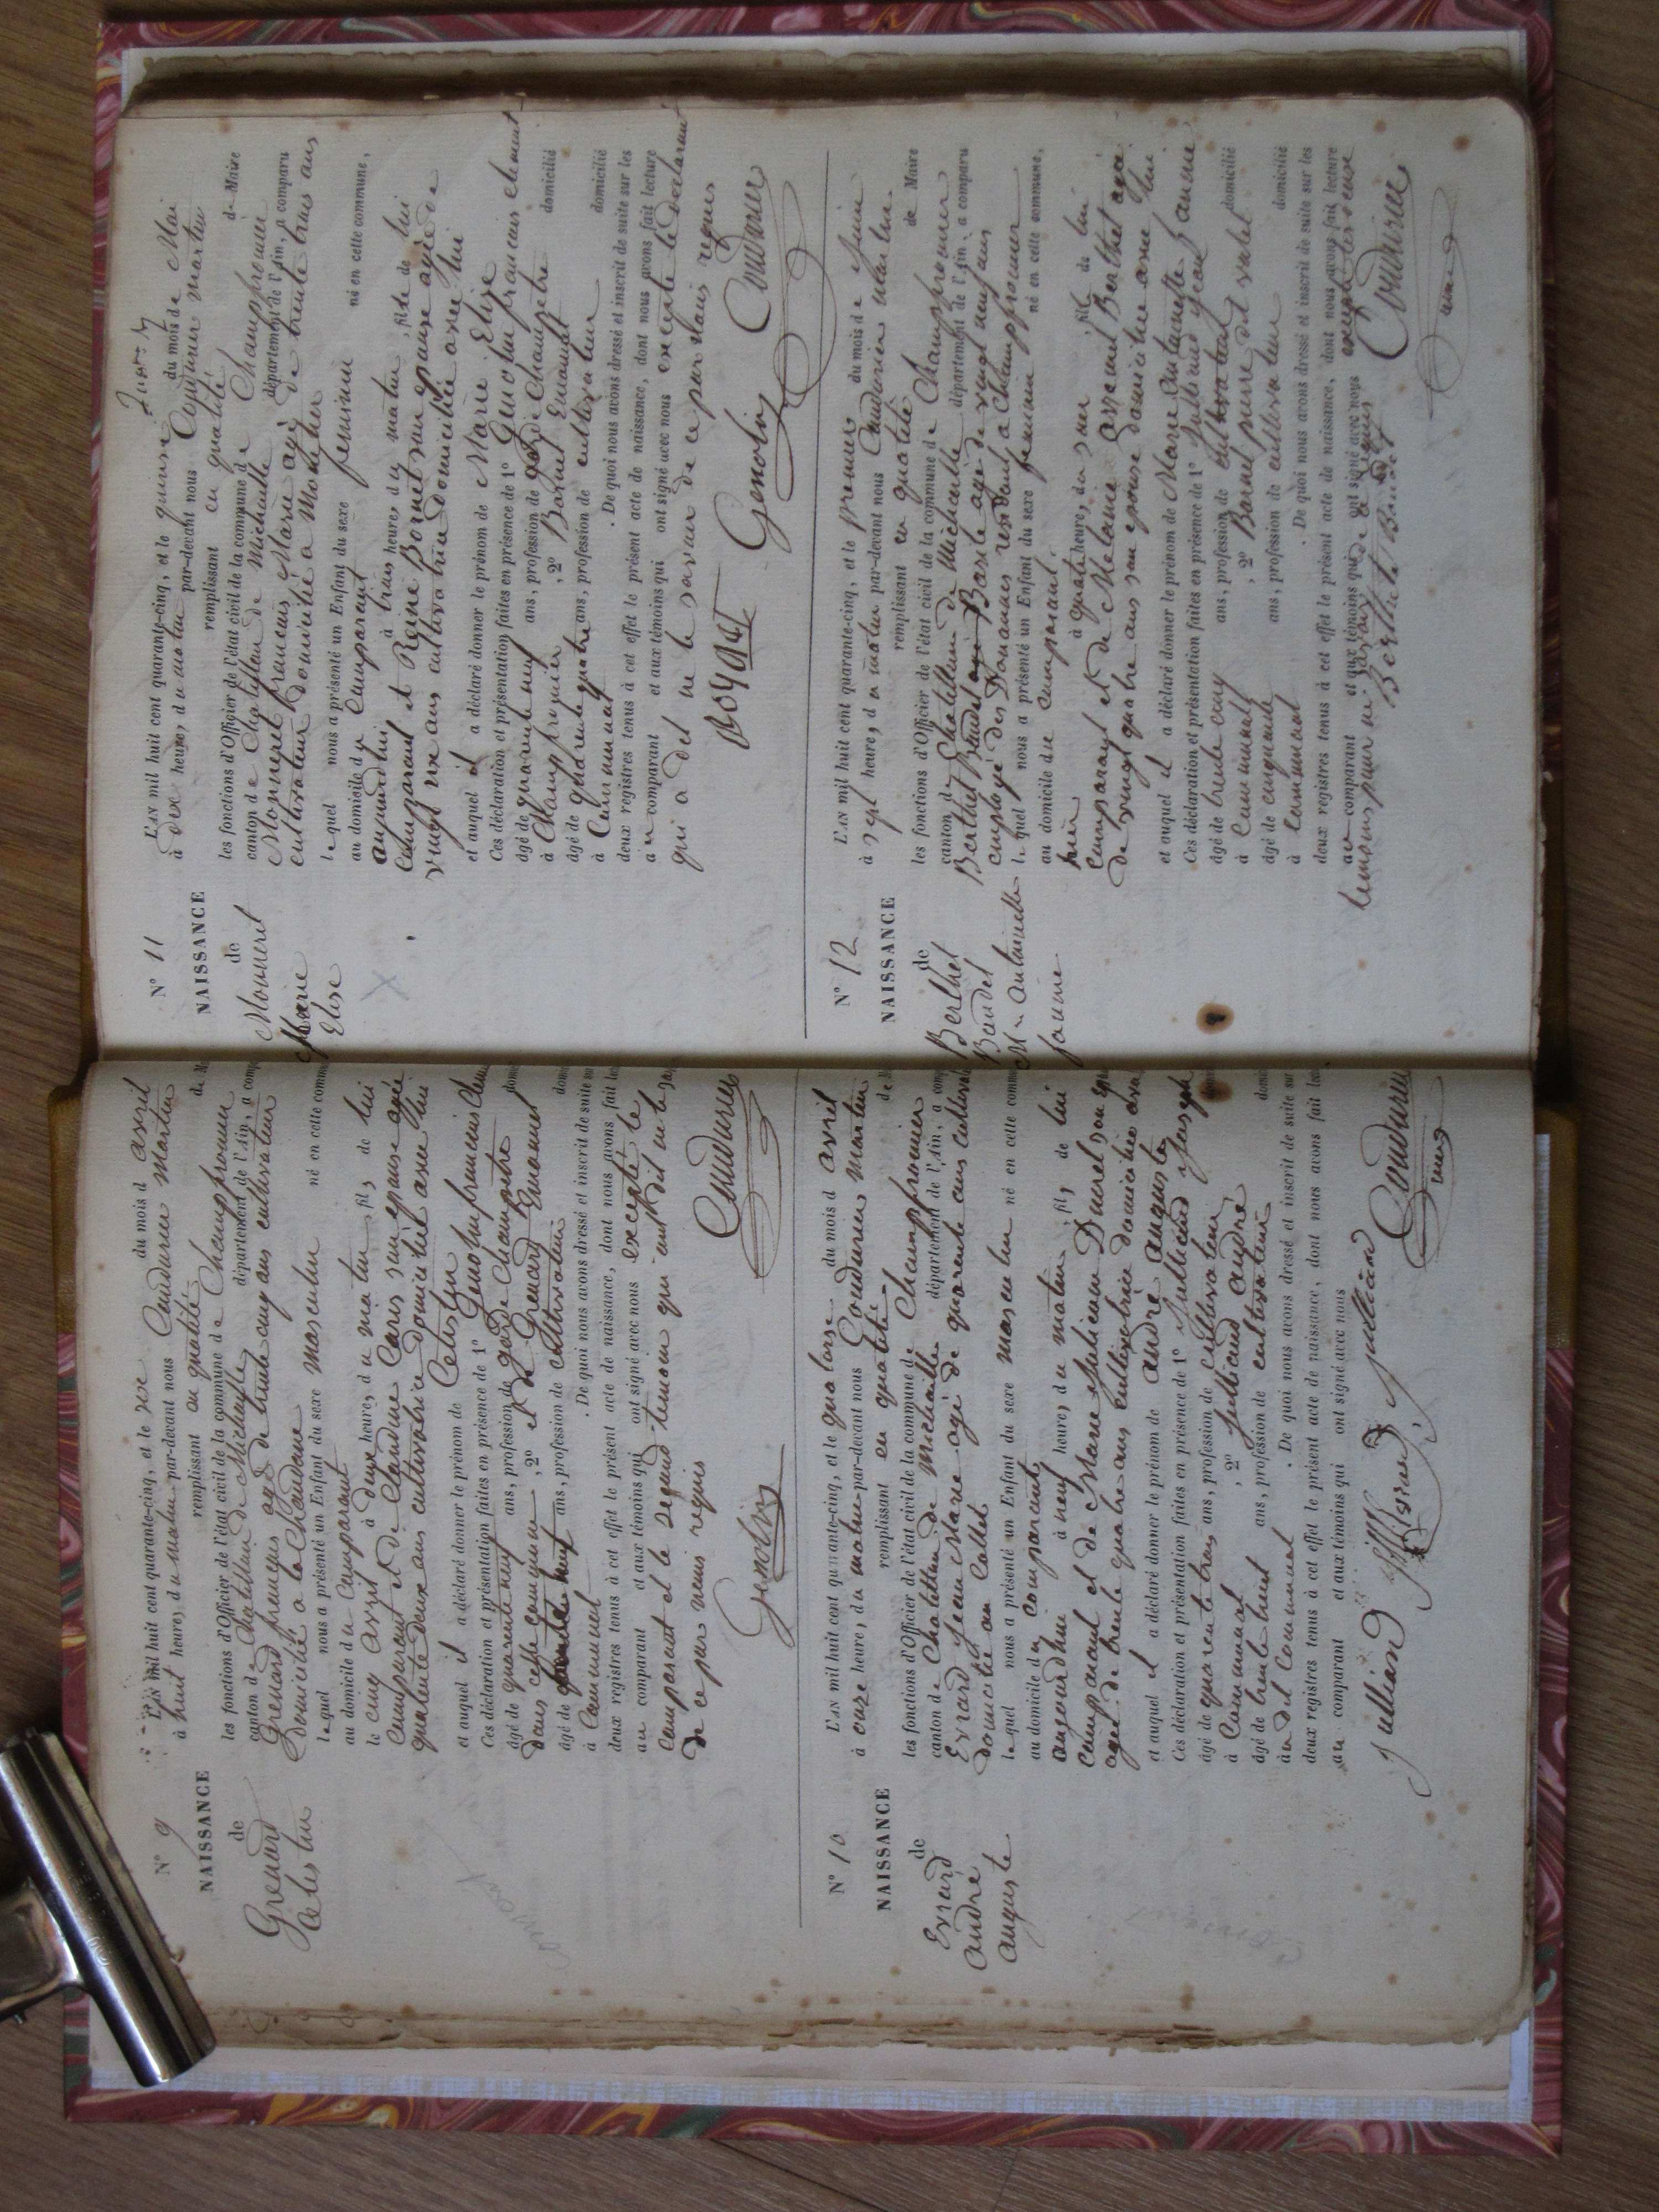 N° 9
NAISSANCE
de
Grenard
Célestin
L'AN mil huit cent quarante-cinq, et le six du mois d avril
à huit heures, du matin par-devant nous Coudurier Martin
remplissant en qualité de M
les fonctions d'Officier de l'état civil de la commune de Champfromier
canton de Chatillon de Michaille département de l'Ain, a comp
Grenard françois agé de trente cinq ans cultivateur
domicilié à la
lequel nous a présenté un Enfant du sexe masculin né en cette comm
au domicile du Comparant
le cinq avril à deux heures, du matin fils de lui
comparant et de Claudine son épouse agée
quarante deux ans cultivatrice domicilié avec lui
et auquel il a déclaré donner le prénom de Celestin
Ces déclaration et présentation faites en présence de 1° Genolin francois Clem
âgé de quarante neuf ans, profession de garde Champetre domi
dans cette commune , 2° et de Grenard Emanuel
âgé de ans, profession de cultivateur domi
à Communal . De quoi nous avons dressé et inscrit de suite su
deux registres tenus à cet effet le présent acte de naissance, dont nous avons fait le
au comparant et aux témoins qui ont signé avec nous excepté le
comparant et le segond temoin qui ont dit ne
de ce par nous requis
Genolin Coudurier
N° 10
NAISSANCE
de
Evrard
André
Auguste
L'AN mil huit cent quarante-cinq, et le quatorse du mois d avril
à onze heure, du matin par-devant nous Coudurier Martin
remplissant en qualité de M
les fonctions d'Officier de l'état civil de la commune de Champfromier
canton de Chatillon de Michaille département de l'Ain, a comp
Evrard Jean Marie agé de quarante ans cultiva
domicilié au Collet
lequel nous a présenté un Enfant du sexe masculin né en cette comm
au domicile du comparant
aujourd'hui à neuf heures, du matin fils de lui
comparant et de Marie Julienne Ducret son ep
agée de trente quatre ans cultivatrice domicilié ave
et auquel il a déclaré donner le prénom de André auguste
Ces déclaration et présentation faites en présence de 1° Julliand Joseph
âgé de quarante trois ans, profession de cultivateur domi
à Communal , 2° Julliand André
âgé de trente huit ans, profession de cultivateur domi
à dit Communal . De quoi nous avons dressé et inscrit de suite sur
deux registres tenus à cet effet le présent acte de naissance, dont nous avons fait lec
au comparant et aux témoins qui ont signé avec nous
Julliand julliand Coudurier
maire
N° 11
NAISSANCE
de
Monneret
Marie
Elise
L'AN mil huit cent quarante-cinq, et le quinse du mois de Mai
à dix heure, du matin par-devant nous Coudurier martin
remplissant en qualité de Maire
les fonctions d'Officier de l'état civil de la commune de Champfromier
canton de Chatillon de Michaille département de l'Ain, a comparu
Monneret francois Marie agé de trente trois ans
cultivateur domicilié a Monetier
lequel nous a présenté un Enfant du sexe feminin né en cette commune,
au domicile du Comparant
aujourdhui à trois heures du matin fille de lui
Comparant et Reine Bornet son epouse agée de
vingt six ans cultivatrice domiciliée avec lui
et auquel il a déclaré donner le prénom de Marie Elise
Ces déclaration et présentation faites en présence de 1° Genolin francois clement
âgé de quarante neuf ans, profession de garde Champetre domicilié
à Champfromier , 2° Bornet Emanuel
âgé de quarante quatre ans, profession de cultivateur domicilié
à Communal . De quoi nous avons dressé et inscrit de suite sur les
deux registres tenus à cet effet le présent acte de naissance, dont nous avons fait lecture
au comparant et aux témoins qui ont signé avec nous excepté le declarant
qui a dit ne le savoir de ce par nous requis
BORNET Genolin Coudurier
N° 12
NAISSANCE
de
Berthet
Baudet
M ie Antoinette
Jannie
L'AN mil huit cent quarante-cinq, et le premier du mois de Juin
à sept heure, du matin par-devant nous Coudurier martin
remplissant en qualité de Maire
les fonctions d'Officier de l'état civil de la commune de Champfromier
canton de Chatillon de Michaille département de l'Ain, a comparu
Berthet Baudet Basile agé de vingt neuf ans
employé des Douanes residant a Champfromier
lequel nous a présenté un Enfant du sexe feminin né en cette commune,
au domicile du comparant
hier à quatre heures, du soir fille de lui
comparant et de Melanie Berthet agée
de vingt quatre ans son epouse domiciliée avec lui
et auquel il a déclaré donner le prénom de Marie Antoinette Jannie
Ces déclaration et présentation faites en présence de 1° Julliand
âgé de trente cinq ans, profession de cultivateur domicilié
à Communal , 2° Bornet pierre dit
âgé de cinquante ans, profession de cultivateur domicilié
à Communal . De quoi nous avons dressé et inscrit de suite sur les
deux registres tenus à cet effet le présent acte de naissance, dont nous avons fait lecture
au comparant et aux témoins que de ont signé avec nous excepté les deux
temoins pour ne savoir de ce requis
Berthet Baudet Coudurier
maire